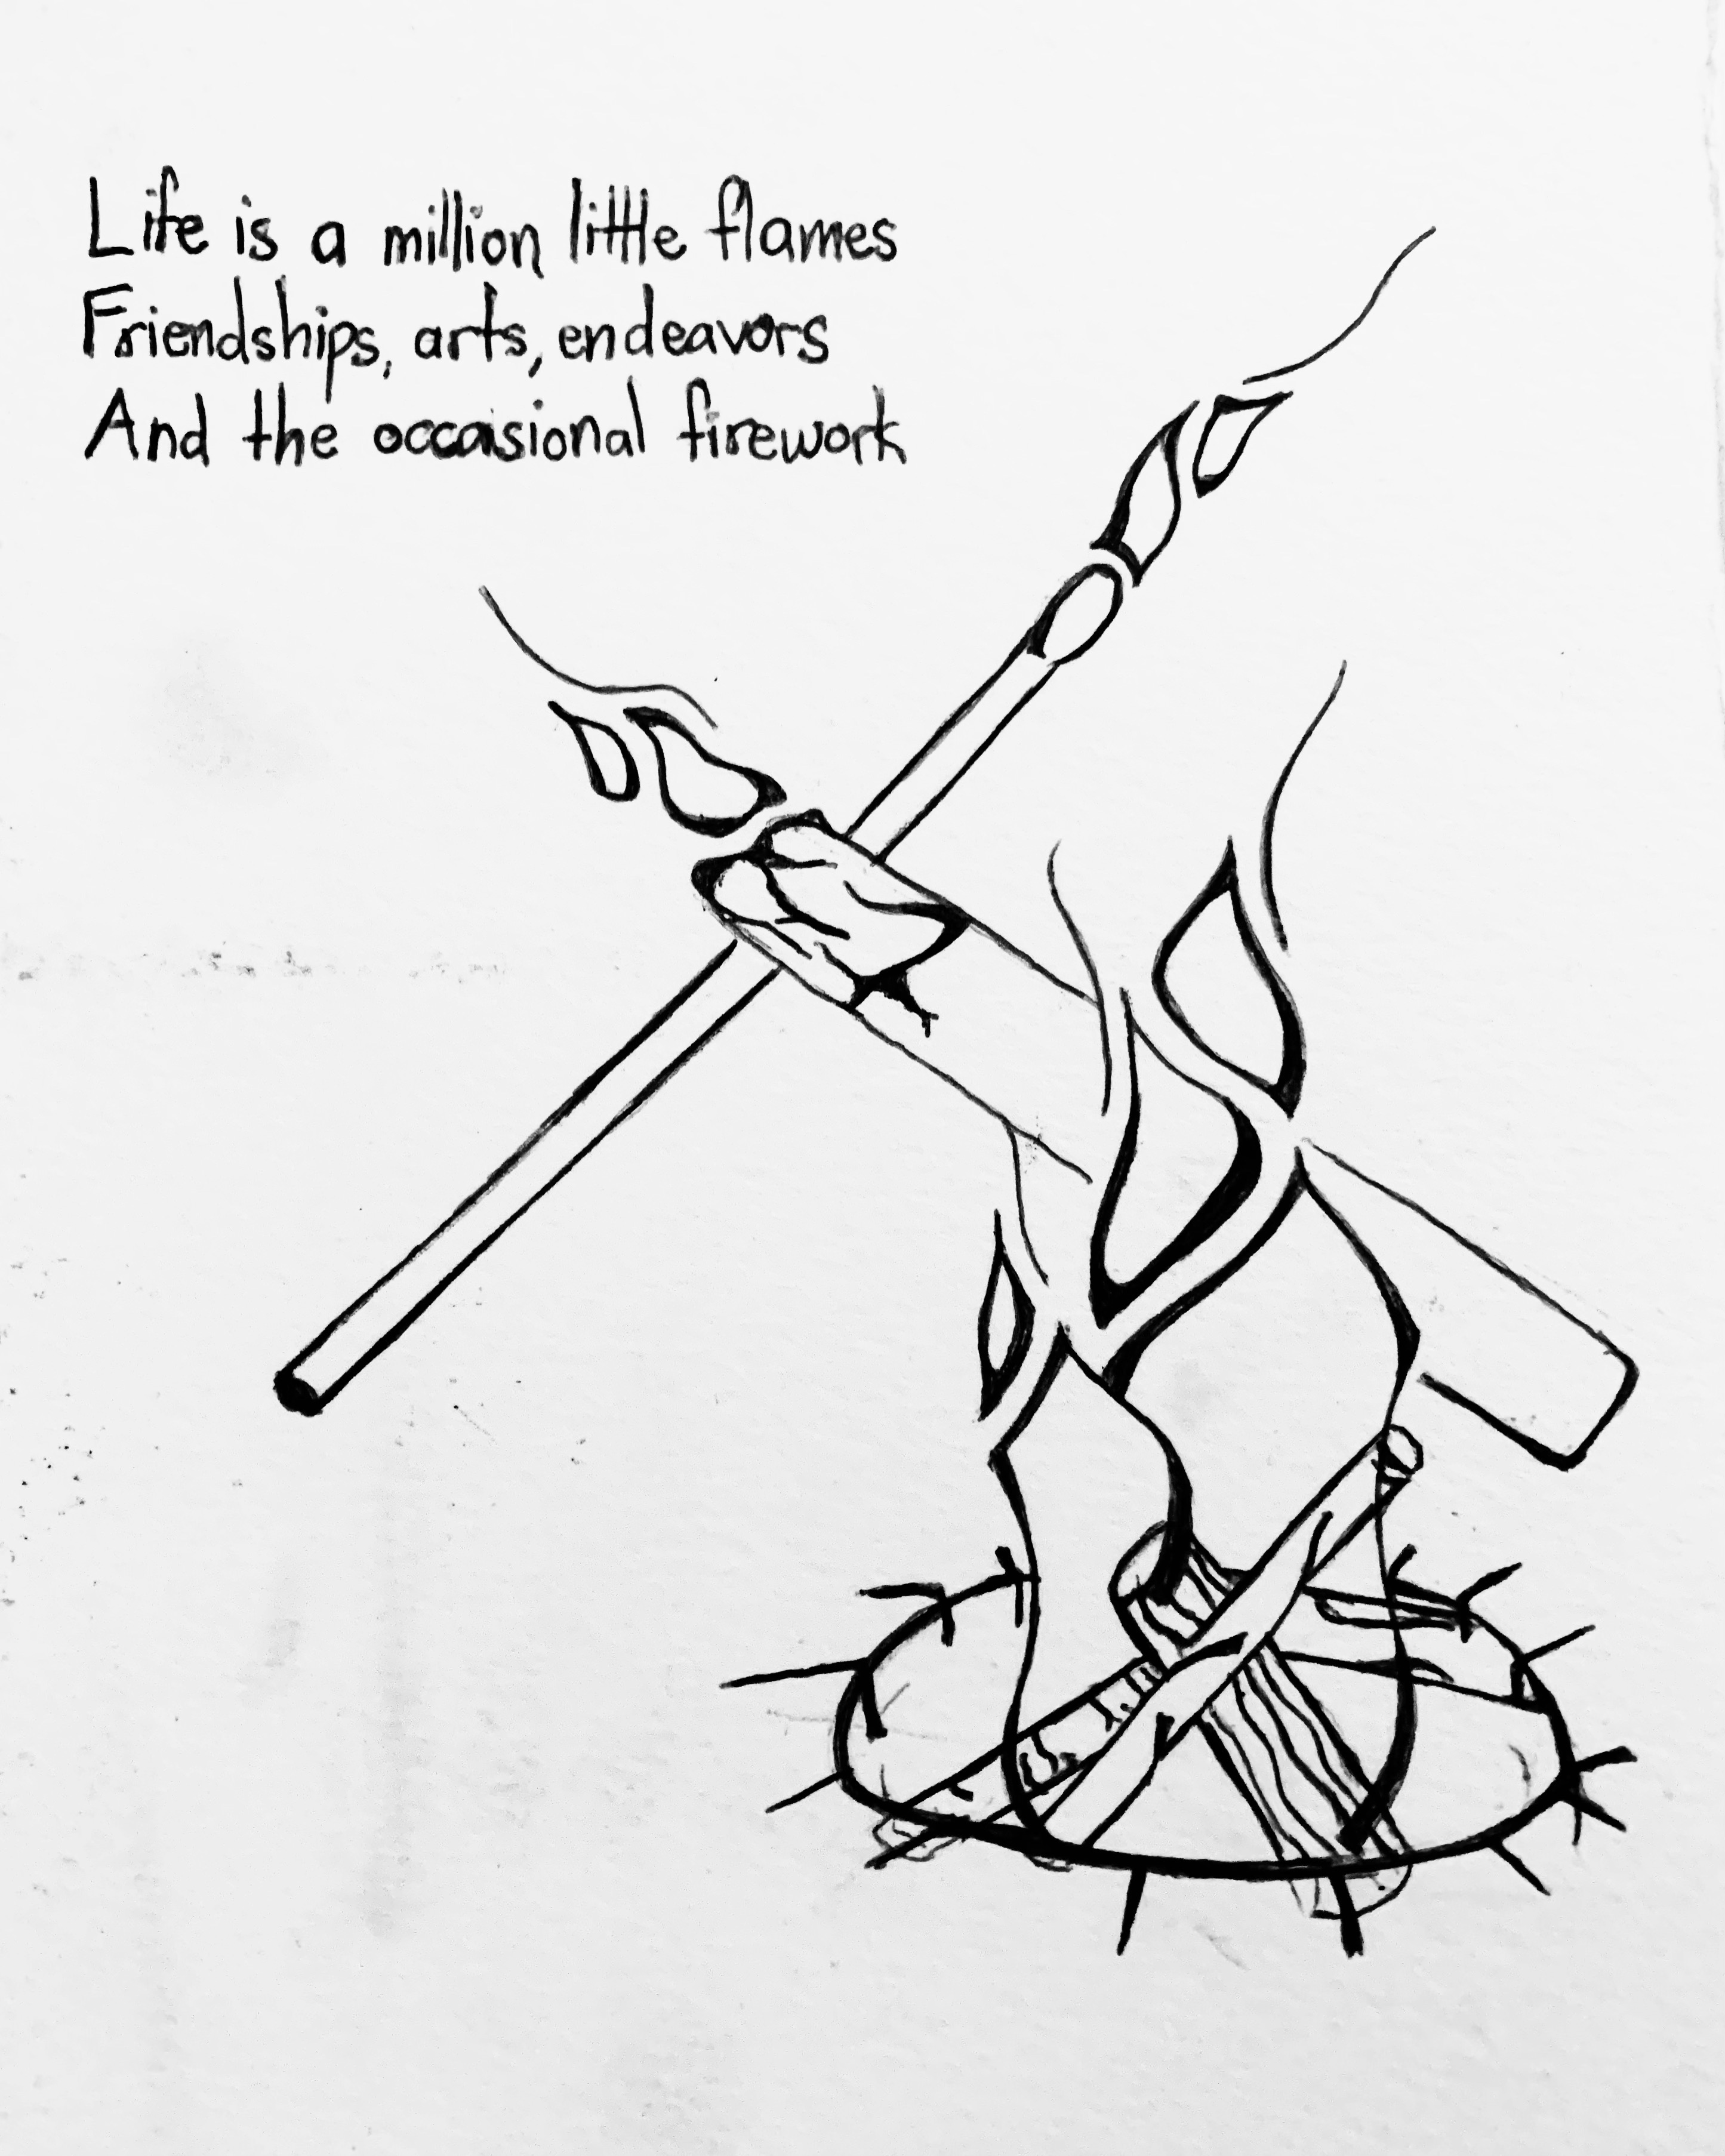 Life is a million little flames
Friendships, arts, endeavors
And the occasional firework